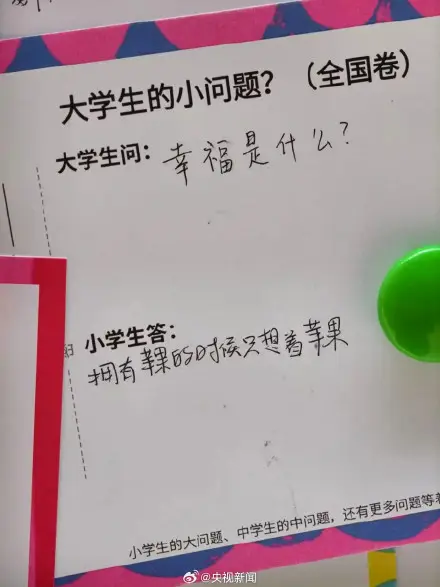 大学生的小问题？（全国卷）
大学生问：幸福是什么？
小学生答：
拥有苹果的时候只想着苹果
小学生的大问题、中学生的中问题，还有更多问题等着
@央视新闻